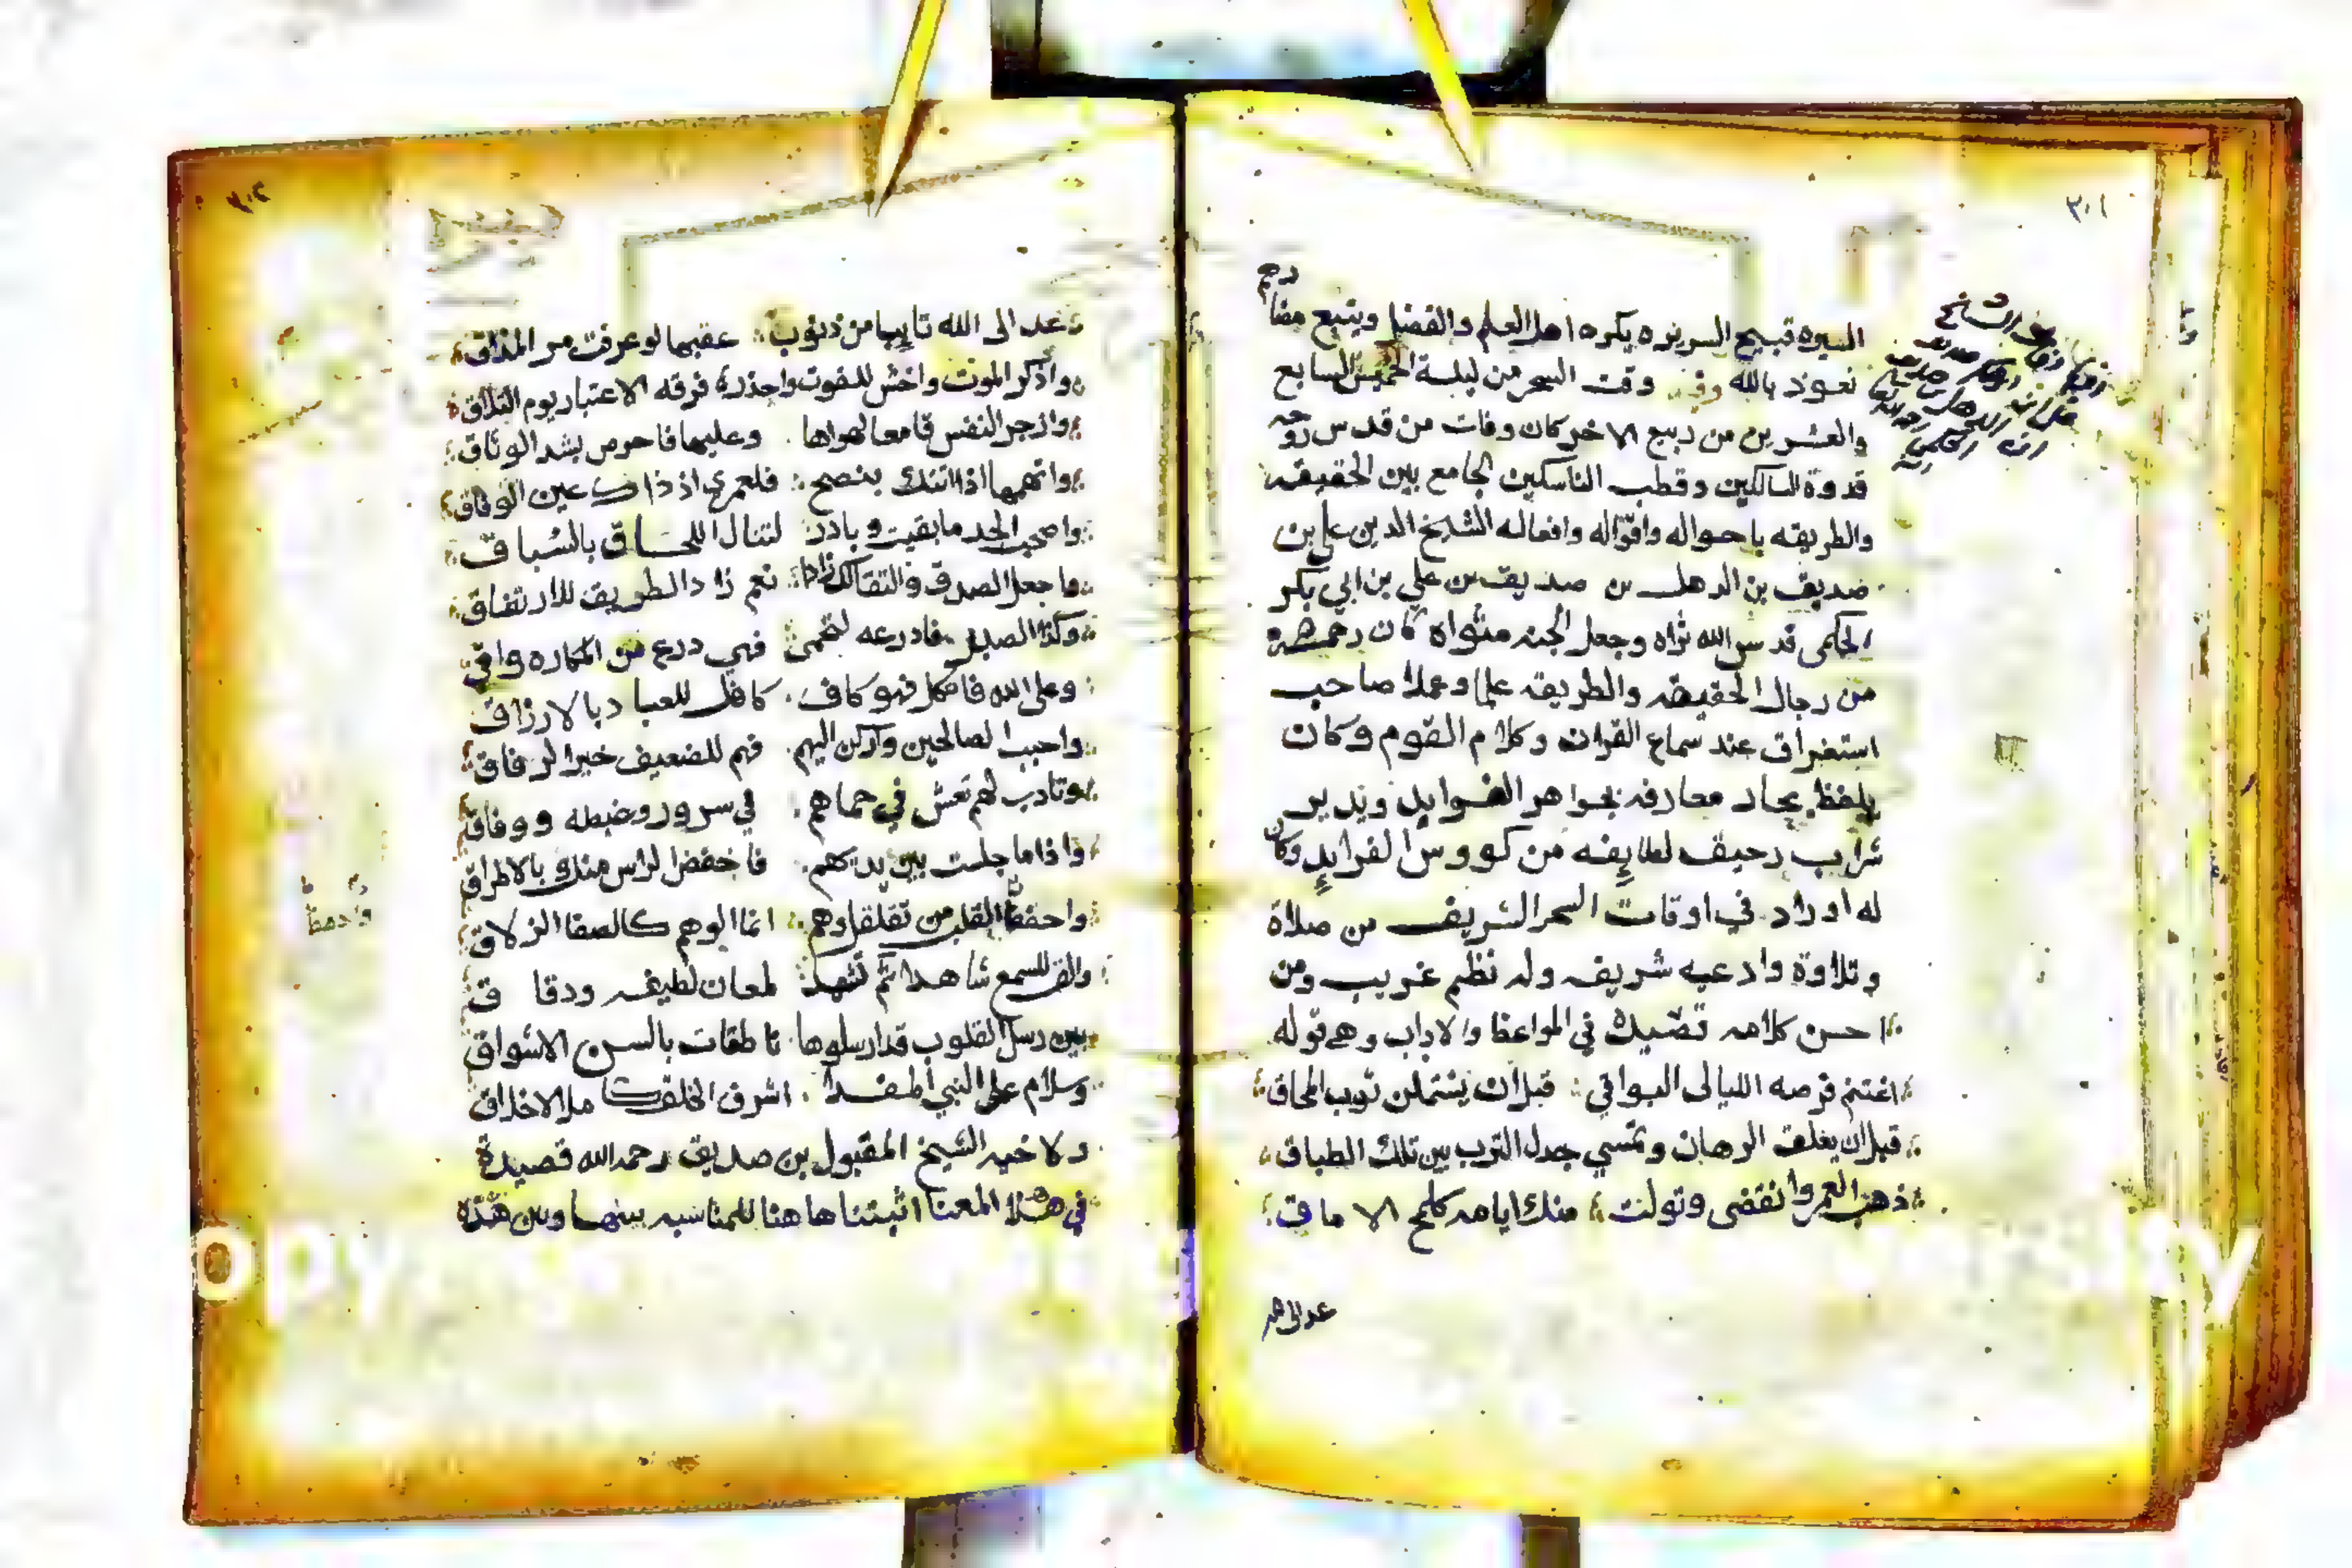 ٣٠١
السيره قبيح السريره يكره اهل العلم والفضل ويتبع مضا
رهم
نعوذ بالله وفي وقت السحر من ليلة الخميس السابع
والعشرين من ربيع الاخر كان وفات من قدس روحه
قدوة السالكين وقطب الناسكين الجامع بين الحقيقه
والطريقه باحواله واقواله وافعاله الشيخ الدين علي بن
صديق بن الدهل بن صديق بن علي بن ابي بكر
الحكمى قدس الله ثراه وجعل الجنه مثواه كان رحمه الله
من رجال الحقيقه والطريقه علما وعملا صاحب
استغراق عند سماع القران وكلام القوم وكان
يلفظ بحار معارفه بجواهر الفوايد ويدير
شراب رحيق لطايفه من كووس الفرايد وكان
له اوراد في اوقات السحر الشريف من صلاة
وتلاوة وادعيه شريفه وله نظم غريب ومن
احسن كلامه قصيدة في المواعظ والاداب وهي قوله
اغتنم فرصه الليالى البواقي قبل ان يشتملن ثوب المحاق
قبل ان يغلق الرهان وتمسي جدل الترب بين تلك الطباق
ذهب العمر وانقضى وتولت منك ايامه كلمح الاماق
عد الى الله
٣٠٢
عد الى الله تايبا من ذنوب عقبها لو عرفت مر المذاق
واذكر الموت واخش للفوت واحذر فرقه الاعتبار يوم التلاق
وازجر النفس قامعا لهواها وعليها فاحرص بشد الوثاق
واتهمها اذا اتتك بنصح فلعمري اذ ذاك عين الوفاق
واصحب الجد ما بقيت وبادر لتنال اللحاق بالسباق
واجعل الصدق والتقا لك زادا نعم زاد الطريق للارتفاق
وكذا الصبر فادرعه لتحمى فهي درع من المكاره واقي
وعلى الله فاتكل فهو كاف كافل للعباد بالارزاق
واحبب الصالحين واركن اليهم فهم للضعيف خير الرفاق
وتادب لهم تعش في حماهم في سرور وغبطه ووفاق
واذا ما جلست بين يديهم فاخفض الراس منك بالاطراق
واحفظ القلب من تقلقل وهم انما الوهم كالصفا الزلاق
والق للسمع شاهدا ثم تشهد لمعان لطيفه ودقاق
بين رسل القلوب قد ارسلوها ناطقات بالسن الاشواق
وسلام على النبي المفدا اشرف الخلق كامل الاخلاق
ولاخيه الشيخ المقبول بن صديق رحمه الله قصيدة
في هذا المعنا اثبتناها هنا للمناسبه بينها وبين هذه